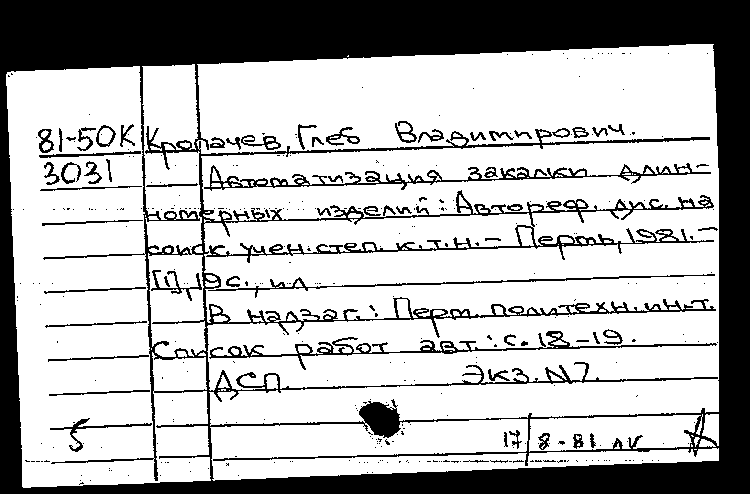 81-50К Кропачев, Глеб Владимирович.
3031 Автоматизация закалки длин-
номерных изделий: Автореф. дис. на
соиск. учен. степ. к.т.н. - Пермь, 1981. -
[1], 19 с., ил.
В надзаг.: Перм. политехн. ин-т.
Список работ авт.: с. 18-19.
ДСП. Экз. N7.
5 17/8-81 лк